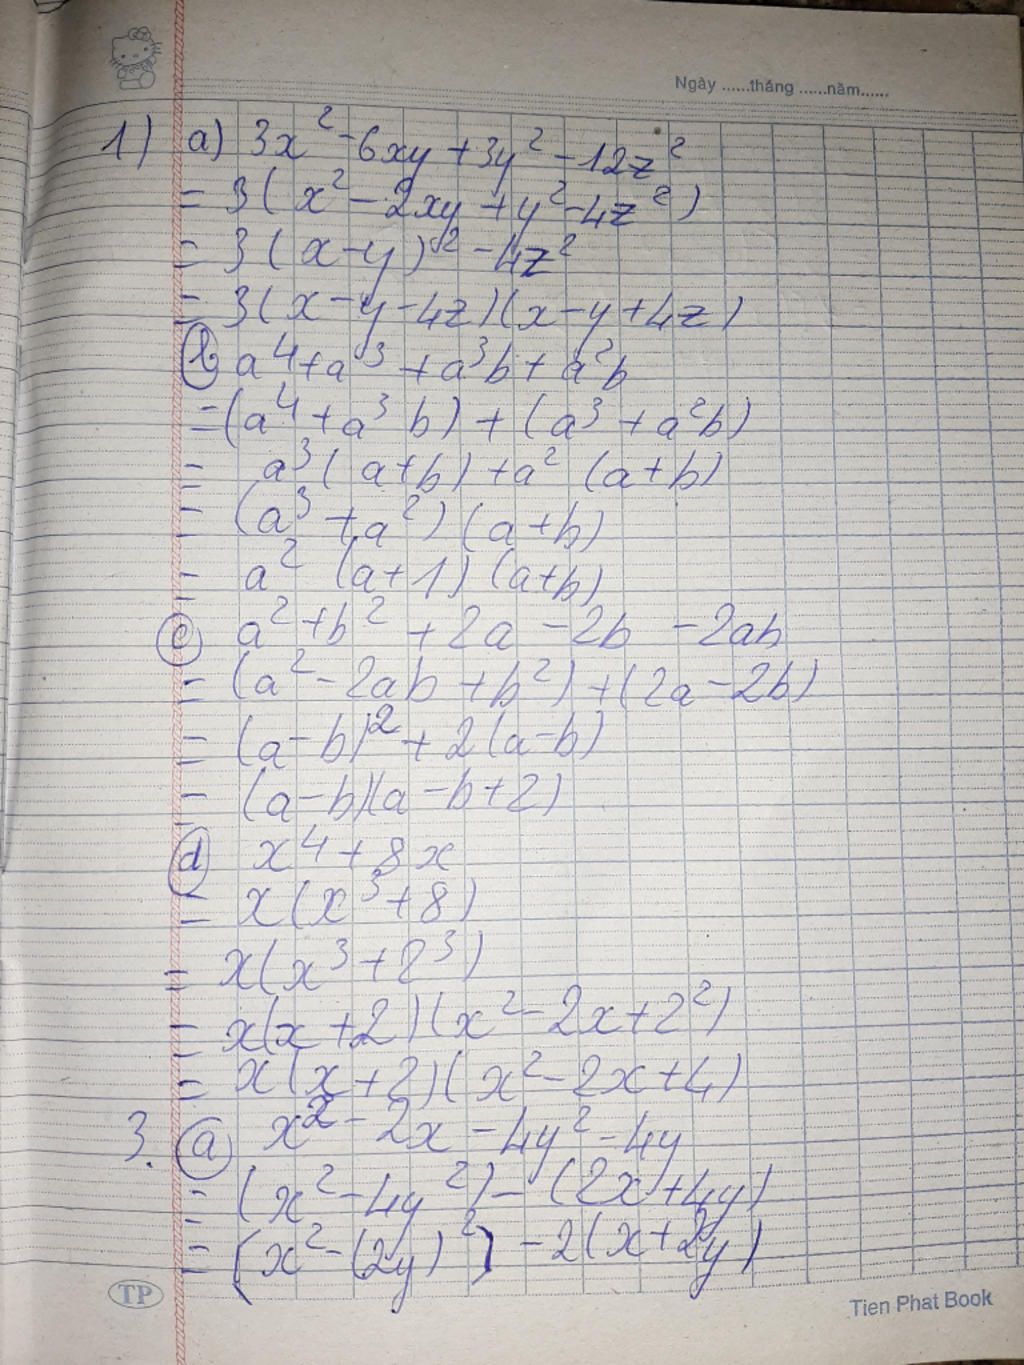 Ngày ......tháng ......năm......
1) a) 3x² - 6xy + 3y² - 12z²
= 3(x² - 2xy + y² - 4z²)
= 3(x - y)² - 4z²
= 3(x - y - 4z)(x - y + 4z)
b a⁴ + a³ + a³b + a²b
= (a⁴ + a³b) + (a³ + a²b)
= a³(a + b) + a²(a + b)
= (a³ + a²)(a + b)
= a²(a + 1)(a + b)
c a² + b² + 2a - 2b - 2ab
= (a² - 2ab + b²) + (2a - 2b)
= (a - b)² + 2(a - b)
= (a - b)(a - b + 2)
d x⁴ + 8x
= x(x³ + 8)
= x(x³ + 2³)
= x(x + 2)(x² - 2x + 2²)
= x(x + 2)(x² - 2x + 4)
3. a x² - 2x - 4y² - 4y
= (x² - 4y²) - (2x + 4y)
= (x² - (2y)²) - 2(x + 2y)
TP
Tien Phat Book